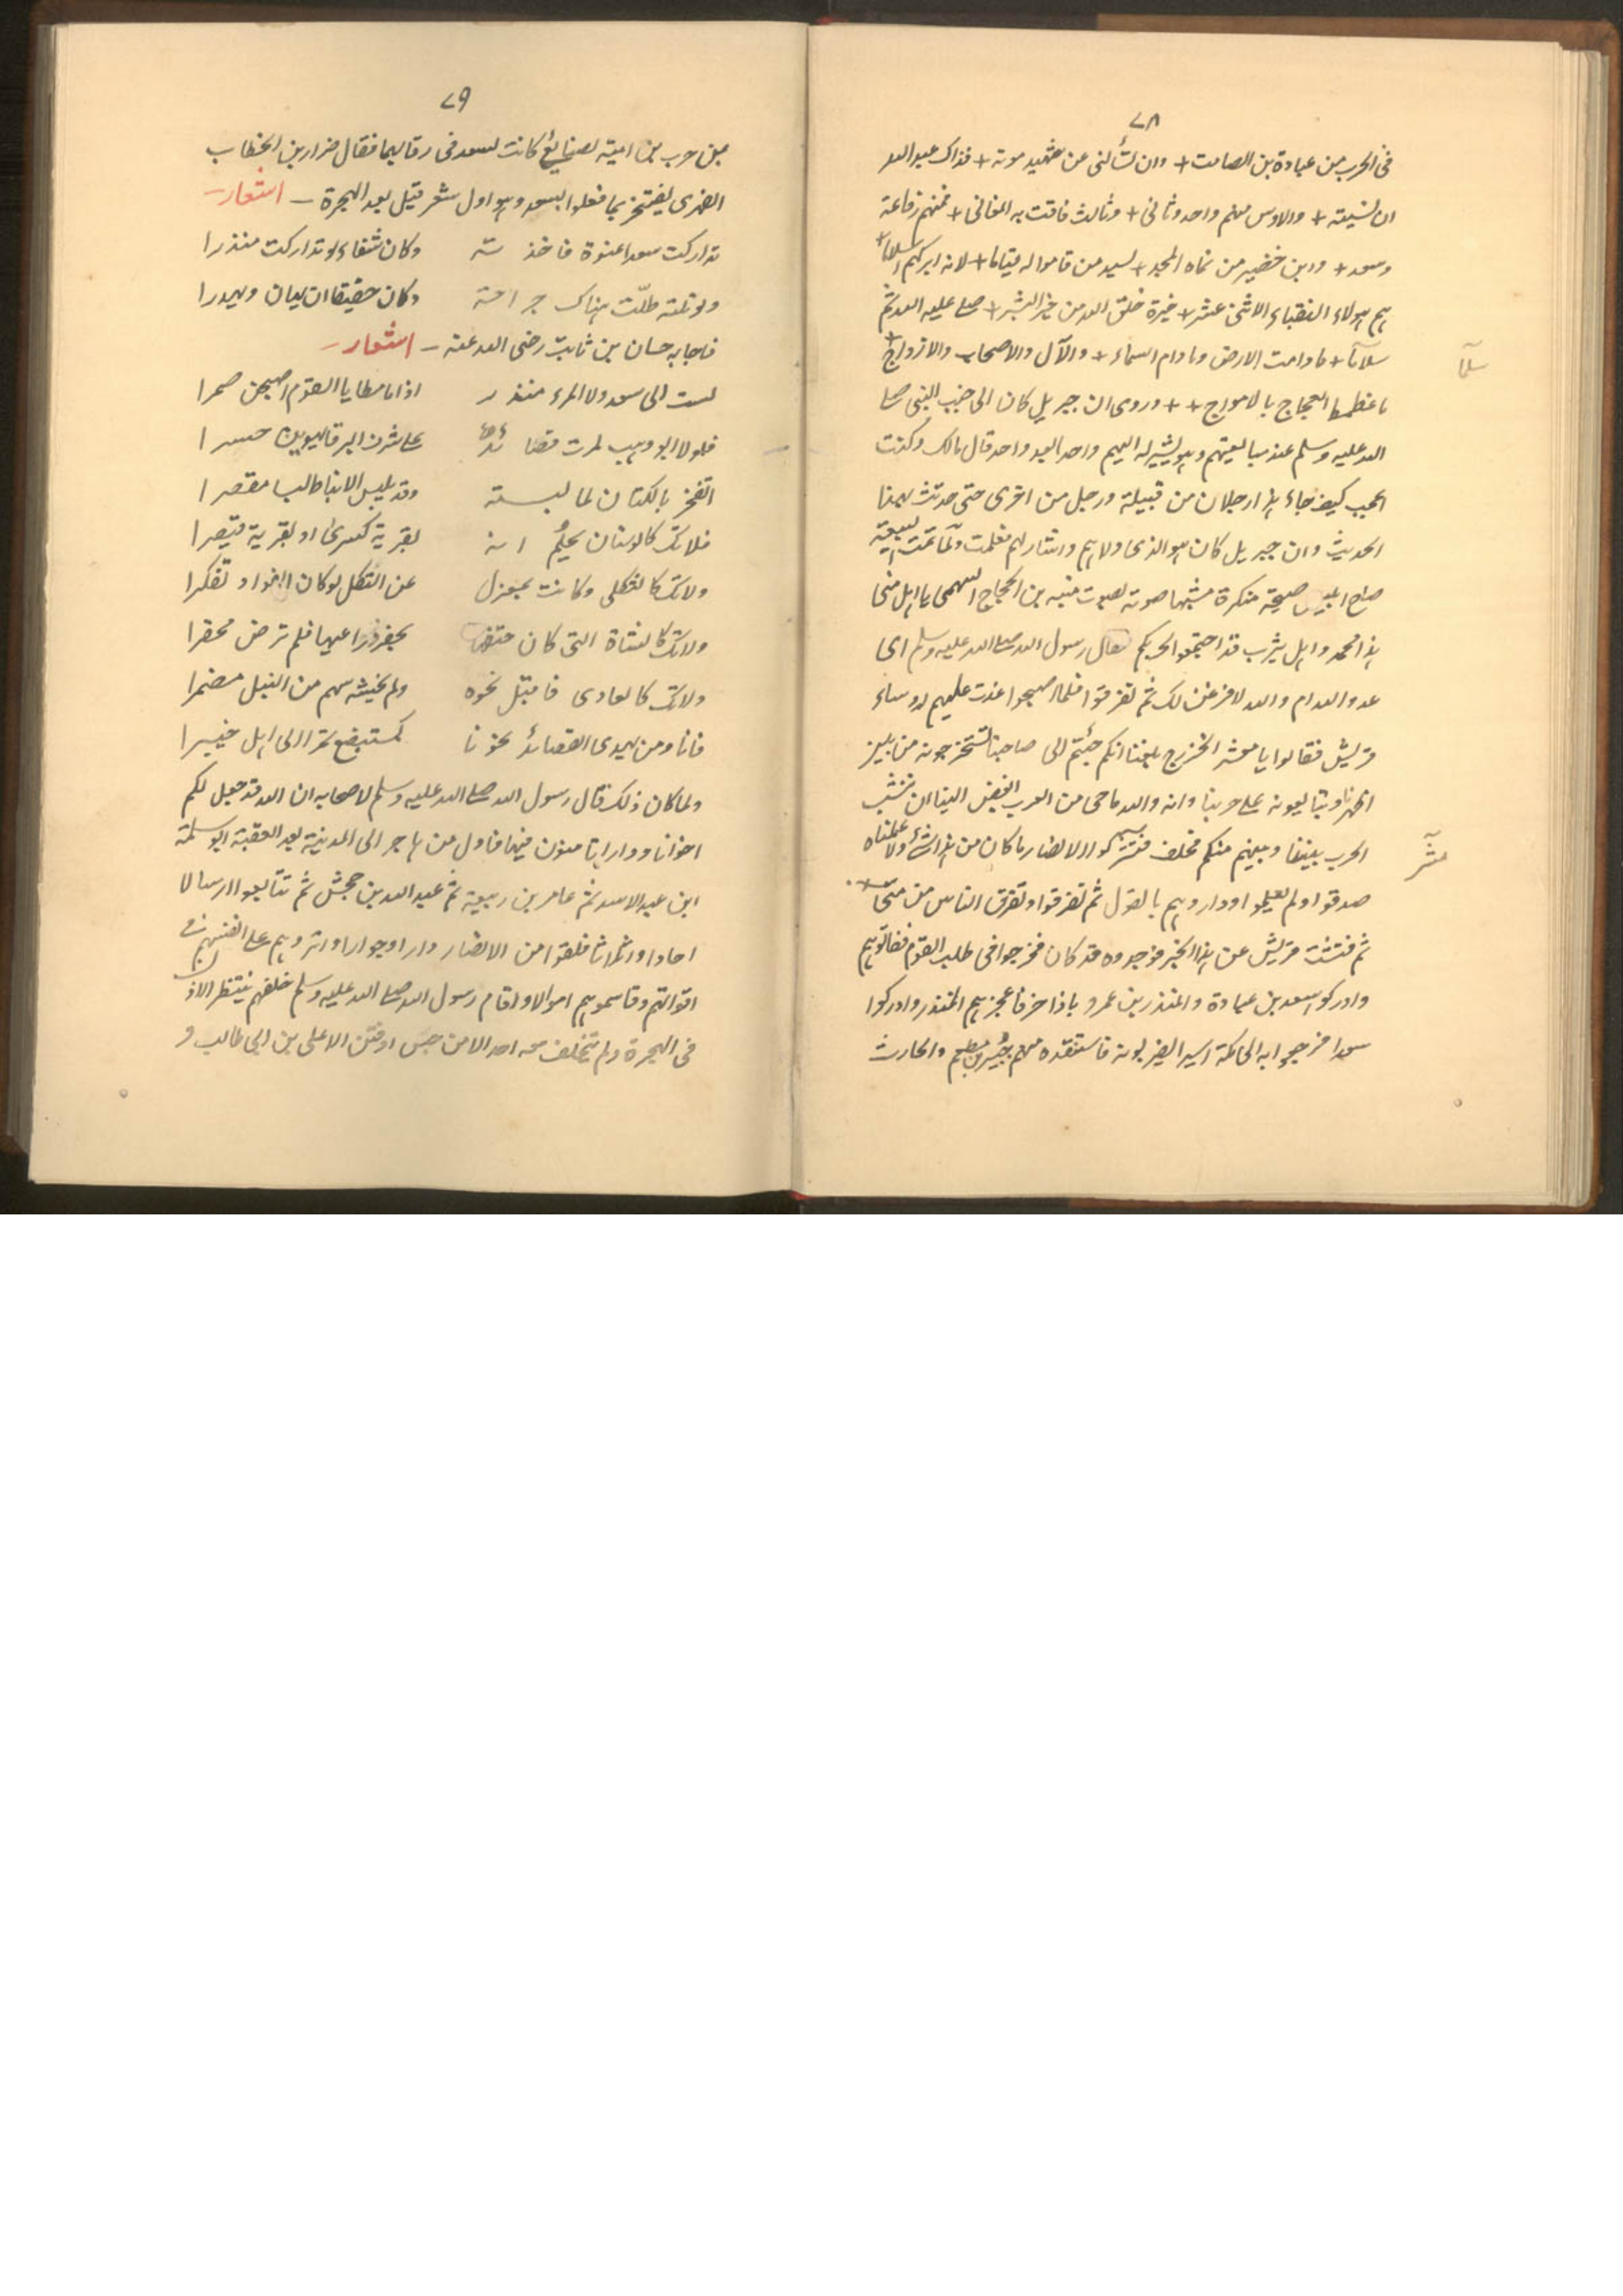 ٧٨
فى الحرب من عبادة بن الصامت + وان تسألنى عن شهيد موتة + فذاك عبد الله
ان نسيته + والاوس منهم واحد وثانى + وثالث فاقت به المغانى + فمنهم رفاعة
وسعد + وابن حضير من نماه المجد + لسيد من قاموا له قياما + لانه ابركهم اسلاما +
هم هولاء النقباء الاثنى عشر + خيرة خلق الله من خير البشر + صلى عليه الله ثم
سلاما + مادامت الارض ومادام السماء + والآل والاصحاب والازواج +
ما غطمط العجاج بالامواج + + وروى ان جبريل كان الى جنب النبى صلى
الله عليه وسلم عند مبايعتهم وهو يشير له اليهم واحدا بعد واحد قال مالك وكنت
اعجب كيف جاء هذا رجلان من قبيلة ورجل من اخرى حتى حدثت بهذا
الحديث وان جبريل كان هو الذى ولاهم واشار لهم فعلمت ولما تمت البيعة
صاح ابليس صيحة منكرة مشبها صوته بصوت منبه بن الحجاج السهمى يا اهل منى
هذا محمد واهل يثرب قد اجتمعوا لحربكم فقال رسول الله صلى الله عليه وسلم اى
عدو الله ام والله لافرغن لك ثم تفرقوا فلما اصبحوا غدت عليهم روساء
قريش فقالوا يا معشر الخزرج بلغنا انكم جئتم الى صاحبنا تستخرجونه من بين
اظهرنا وتبايعونه على حربنا وانه والله ما حى من العرب ابغض الينا ان تنشب
الحرب بيننا وبينهم منكم فحلف مشركوا الانصار ما كان من هذا شئ ولا علمناه
صدقوا ولم يعلموا وداروهم بالقول ثم تفرقوا وتفرق الناس من منى
ثم فتشت قريش عن هذا الخبر فوجدوه قد كان فخرجوا فى طلب القوم ففاتوهم
وادركوا سعد بن عبادة والمنذر بن عمرو باذاخر فاعجزهم المنذر وادركوا
سعدا فرجعوا به الى مكة اسيرا يضربونه فاستنقذه منهم جبير بن مطعم والحارث
سلما
مشر
٧٩
بن حرب بن امية لصنايع كانت لسعد فى رقابهما فقال ضرار بن الخطاب
الفهرى يفتخر بما فعلوا بسعد وهو اول شعر قيل بعد الهجرة - اشعار -
تداركت سعدا عنوة فاخذ ته وكان شفاء لو تداركت منذرا
ولو نلته طلّت هناك جراحة وكان حقيقا ان يهان ويهدرا
فاجابه حسان بن ثابت رضى الله عنه - اشعار -
لست الى سعد ولا المرء منذر اذا ما مطايا القوم اصبحن ضمرا
فلولا ابو وهب لمرت قصا ئد على شرف البرقا يهوين حسرا
اتفخر بالكتان لما لبسته وقد يلبس الانباط ريطا مقصرا
فلا تك كالوسنان يحلم انه بقرية كسرى او بقرية قيصرا
ولا تك كالثكلى وكانت بمعزل عن الثكل لو كان الفواد تفكرا
ولا تك كالشاة التى كان حتفها بحفر ذراعيها فلم ترض محفرا
ولا تك كالعاوى فاقبل نحوه ولم يخشه سهم من النبل مضمرا
فانا ومن يهدى القصائد نحونا كمستبضع تمرا الى اهل خيبرا
ولما كان ذلك قال رسول الله صلى الله عليه وسلم لاصحابه ان الله قد جعل لكم
اخوانا ودارا تامنون فيها فاول من هاجر الى المدينة بعد العقبة ابو سلمة
ابن عبد الاسد ثم عامر بن ربيعة ثم عبد الله بن جحش ثم تتابعوا ارسالا
احادا وثلاثا فلقوا من الانصار دارا وجوارا واثروهم على انفسهم فى
اقواتهم وقاسموهم اموالا واقام رسول الله صلى الله عليه وسلم خلفهم ينتظر الاذن
فى الهجرة ولم يتخلف معه احد الا من حبس او فتن الا على بن ابى طالب و